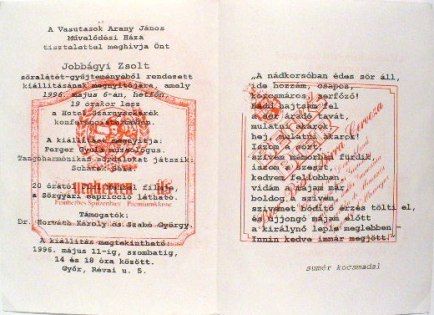 A Vasutasok Arany János
Művelődési Háza
tisztelettel meghívja Önt
Jobbágyi Zsolt
söralátét-gyűjteményéből rendezett
kiállításának megnyitójára, amely
1996. május 6-án, hétfőn
19 órakor lesz
a Hotel Szárnyaskerék
konferenciatermében.
A kiállítást megnyitja:
Perger Gyula muzeológus
Tangóharmónikás sördalokat játszik:
20 órától
a Sörgyári capriccio látható.
Támogatók:
Dr. Horváth Károly és Szabó György.
A kiállítás megtekinthető
1996. május 11-ig, szombatig,
14 és 18 óra között.
Győr, Révai u. 5.
„A nádkorsóban édes sör áll,
ide hozzám, csapos,
kocsmáros, serfőző!
Hadd hajtsam fel
a sör áradó tavát,
mulatni akarok!
Iszom a sört,
szívem mámorban fürdik,
iszom a szeszt,
kedvem fellobban,
vidám a májam már,
boldog a szívem,
szívemet hódító érzés tölti el,
és ujjongó májam előtt
a királynő leple meglebben -
Innin kedve immár megjött."
sumér kocsmadal